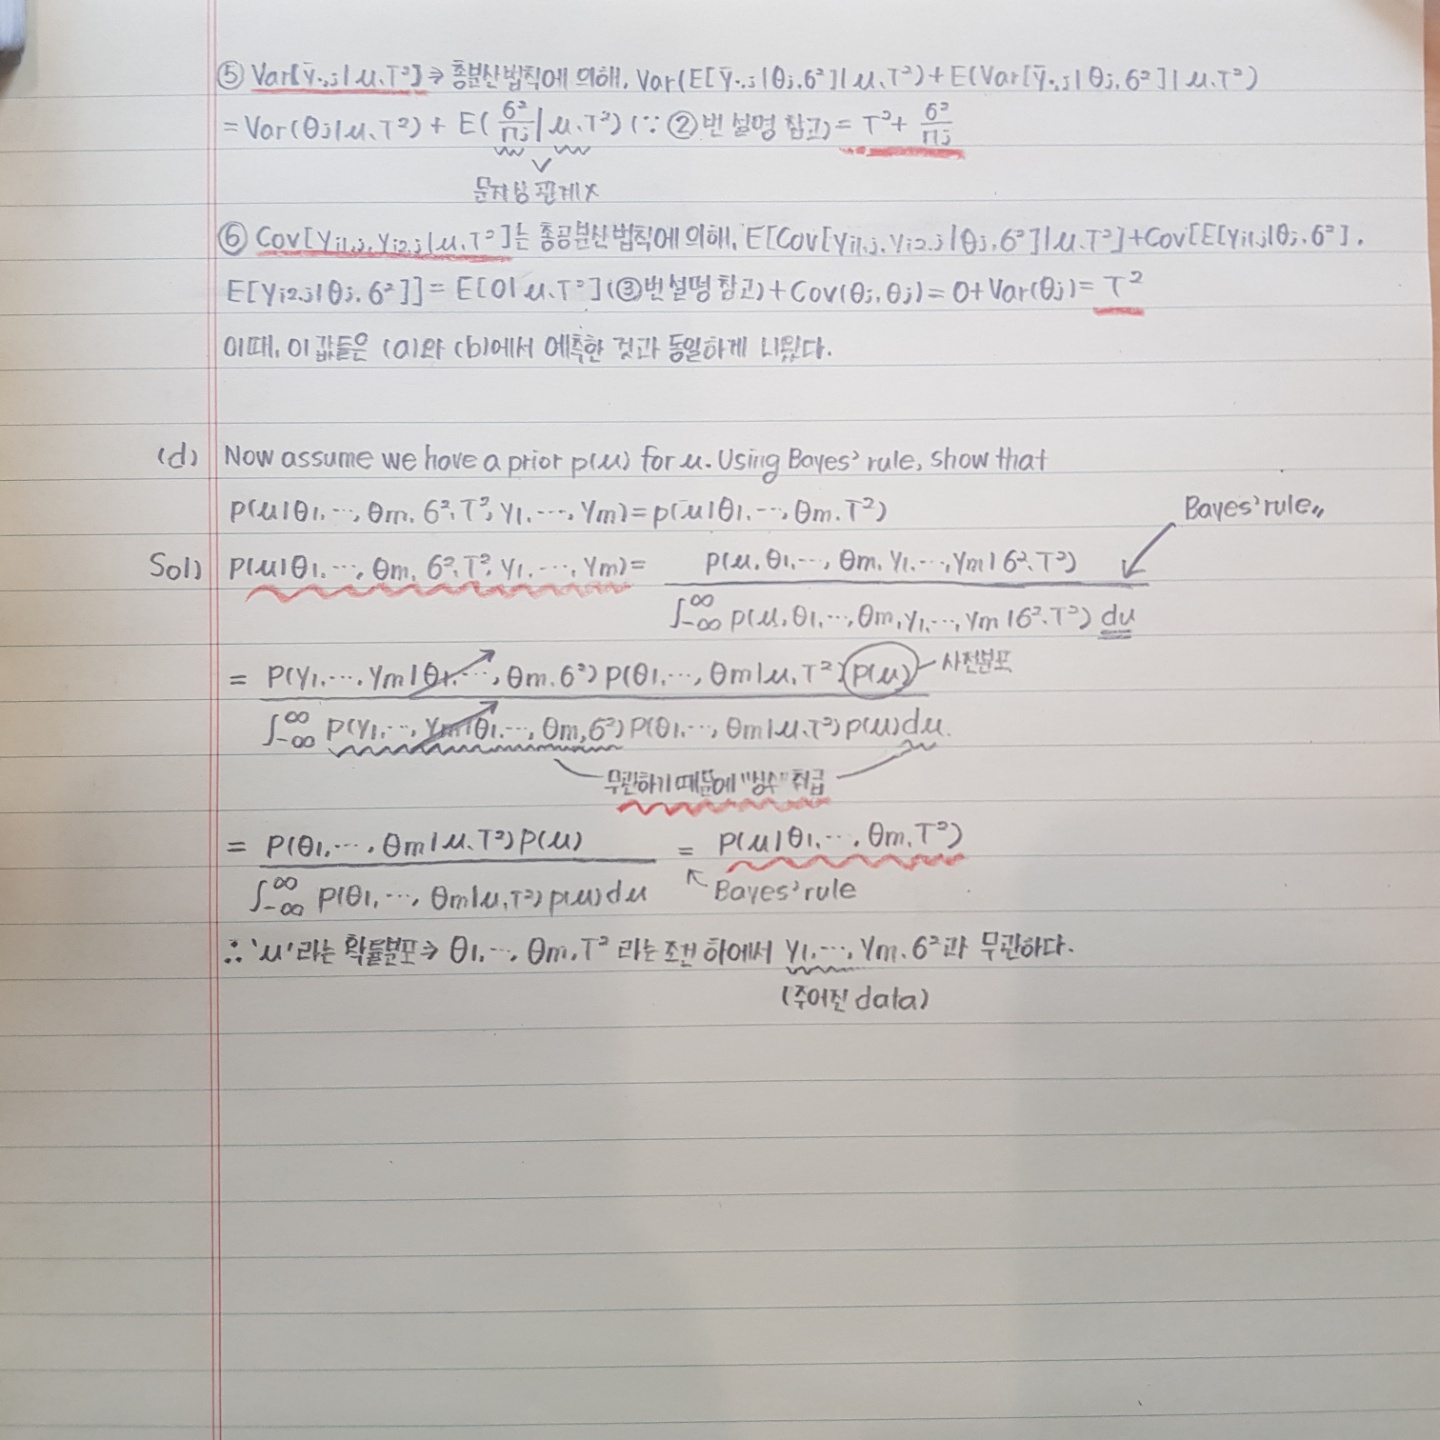 ⑤ Var[ȳ.,j|μ,τ²]⇒ 총분산법칙에 의해, Var(E[ȳ.,j|θj,σ²]|μ,τ²)+E(Var[ȳ.,j|θj,σ²]|μ,τ²)
=Var(θj|μ,τ²) + E(σ²/nj|μ,τ²) (∵②번 설명 참고)= τ²+ σ²/nj
문자상 관계X
⑥ Cov[yi1,j, yi2,j|μ,τ²]는 총공분산법칙에 의해, E[Cov[yi1,j, yi2,j|θj,σ²]|μ,τ²]+Cov[E[yi1,j|θj,σ²],
E[yi2,j|θj,σ²]]= E[0|μ,τ²](③번 설명 참고)+Cov(θj,θj)=0+Var(θj)= τ²
이때, 이 값들은 (a)와 (b)에서 예측한 것과 동일하게 나왔다.
(d) Now assume we have a prior p(μ) for μ. Using Bayes' rule, show that
p(μ|θ1,…,θm,σ²,τ²,y1,…,ym)=p(μ|θ1,…,θm,τ²)
Bayes' rule〃
Sol) p(μ|θ1,…,θm,σ²,τ²,y1,…,ym)= p(μ,θ1,…,θm,y1,…,ym|σ²,τ²)
∫-∞^∞ p(μ,θ1,…,θm,y1,…,ym|σ²,τ²) dμ
= p(y1,…,ym|θ1,…,θm,σ²)p(θ1,…,θm|μ,τ²)p(μ) 사전분포
∫-∞^∞ p(y1,…,ym|θ1,…,θm,σ²)p(θ1,…,θm|μ,τ²)p(μ)dμ.
무관하기 때문에 "상수" 취급
= p(θ1,…,θm|μ,τ²)p(μ) = p(μ|θ1,…,θm,τ²)
∫-∞^∞ p(θ1,…,θm|μ,τ²)p(μ)dμ Bayes' rule
∴'μ'라는 확률분포⇒ θ1,…,θm,τ² 라는 조건 하에서 y1,…,ym,σ²과 무관하다.
(주어진 data)